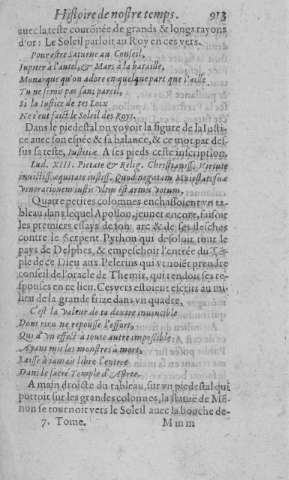 Histoire de nostre temps. 913
auec la teste couronée de grands & longs rayons
d'or: Le Soleil parloit au Roy en ces vers.
Pour estre Saturne au Conseil,
Iupiter à l'autel, & Mars à la bataille,
Monarque qu'on adore en quelque part que i'aille
Tu ne serois pas sans pareil,
Si la Iustice de tes Loix
Ne t'eut faict le Soleil des Roys.
Dans le piedestal on voyoit la figure de la Iusti-
ce auec son espée & sa balance, & ce mot par des-
sus sa teste, Iustitia. A ses pieds ceste inscription,
Lud. XIII. Pietate & Relig. Christianiss. Virtute
inuictiss. æquitate iustiss. Quod negatam Maiestatis suæ
venerationem iustis Vltus est armis Votum.
Quatre petites colomnes enchassoient vn ta-
bleau dans lequel Apollon, ieune encore, faisoit
les premiers essays de son arc & de ses flesches
contre le Serpent Python qui desoloit tout le
pays de Delphes, & empeschoit l'entrée du Tē-
ple de ce Lieu aux Pelerins qui venoiēt prendre
conseil de l'oracle de Themis, qui rendoit ses re-
sponses en ce lieu. Ces vers estoient escrits au mi-
lieu de la grande frize dans vn quadre,
C'est la Valeur de ta dextre inuincible
Dont rien ne repousse l'effort,
Qui d'vn effect à toute autre impossible
Ayant mis les monstres à mort,
Laisse à iamais libre l'entrée
Dans le sacré Temple d'Astrée.
A main droicte du tableau, sur vn piedestal qui
portoit sur les grandes colonnes, la statuë de Mē-
non se tournoit vers le Soleil auec la bouche de-
7. Tome. Mmm